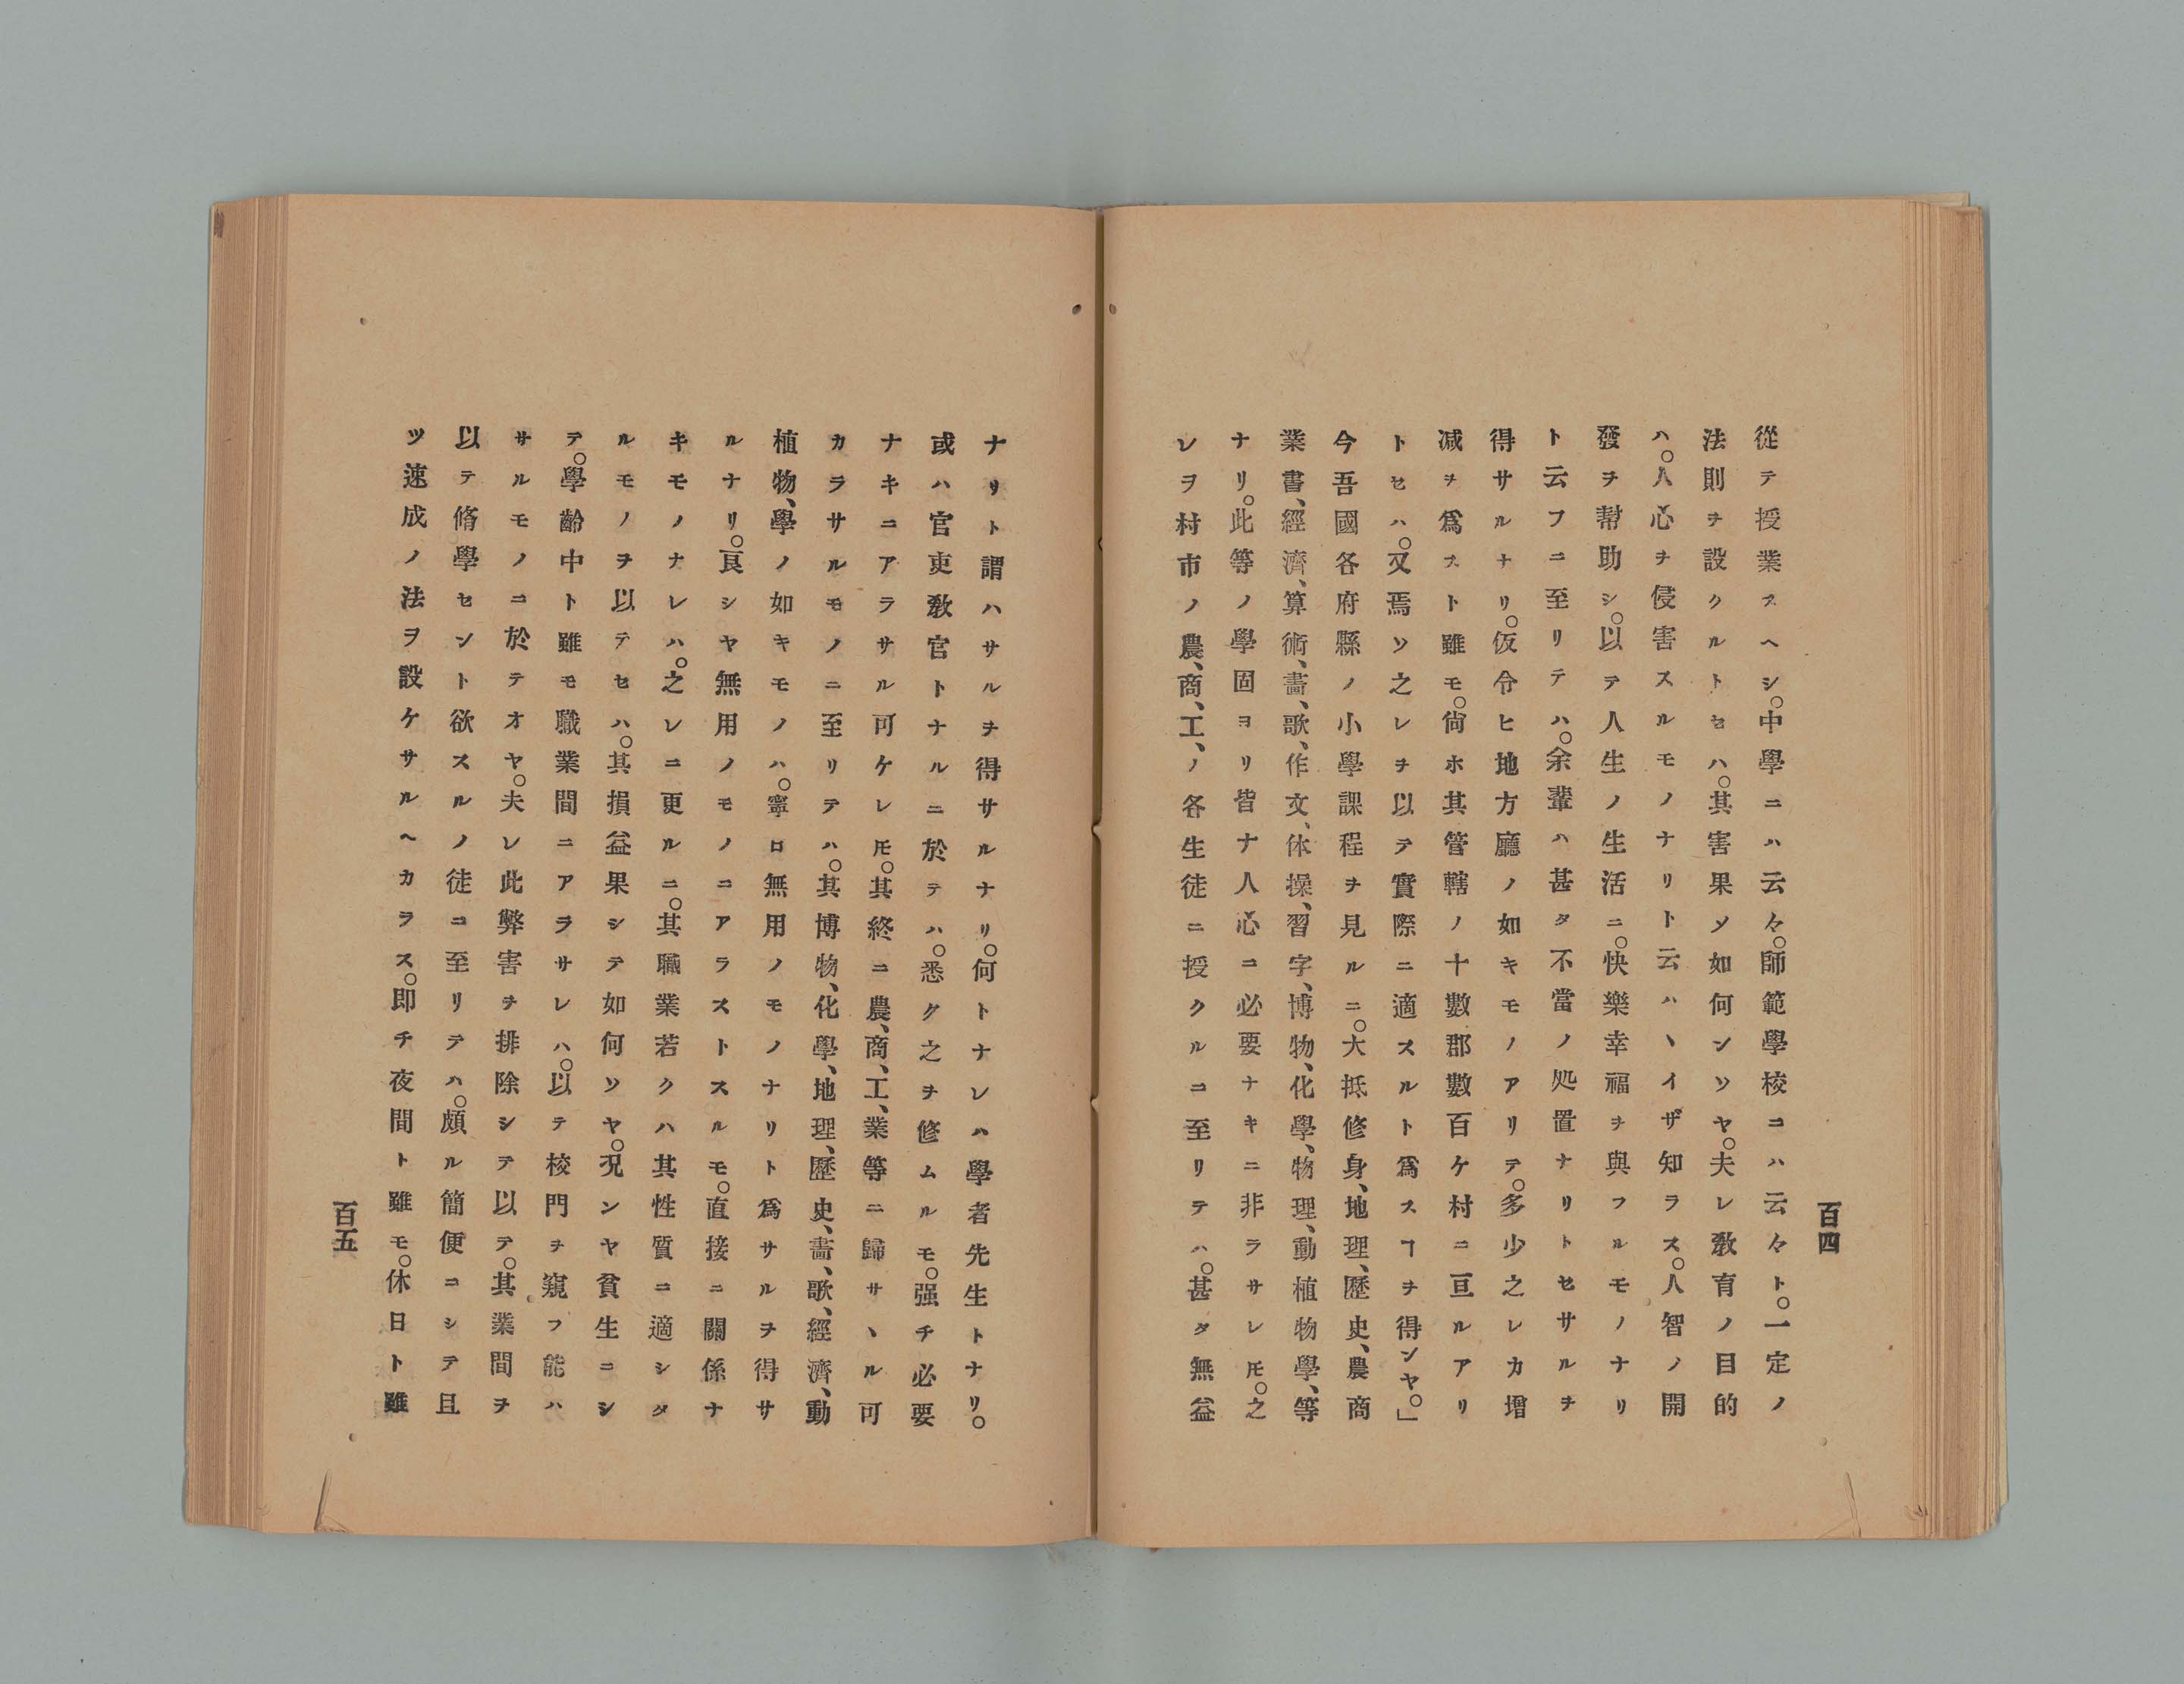 百四
從テ授業スヘシ。中學ニハ云々。師範學校コハ云々ト。一定ノ
法則チ設クルトセハ。其害果メ如何ンソヤ。夫レ敎育ノ目的
ハ。人心ヲ侵害スルモノナリト云ハヽイザ知ラス。人智ノ開
發ヲ幇助シ。以テ人生ノ生活ニ。快樂幸福ヲ與フルモノナリ
ト云フニ至リテハ。余輩ハ甚タ不當ノ処置ナリトセサルチ
得サルナリ。仮令ヒ地方廳ノ如キモノアリテ。多少之レカ增
减ヲ爲スト雖モ。尙ホ其管轄ノ十數郡數百ケ村ニ亘ルアリ
トセハ。又焉ソ之レヲ以テ實際ニ適スルト爲スヿヲ得ンヤ。」
今吾國各府縣ノ小學課程ヲ見ルニ。大抵修身、地理、歷史、農商
業書、經濟、算術、畵、歌、作文、体操、習字、博物、化學、物理、動植物學、等
ナリ。此等ノ學固ヨリ皆ナ人心コ必要ナキニ非ラサレ𪜈。之
レヲ村市ノ農、商、工、ノ各生徒ニ授クルコ至リテハ。甚タ無益
ナリト謂ハサルヲ得サルナリ。何トナレハ學者先生トナリ。
或ハ官吏敎官トナルニ於テハ。悉ク之ヲ修ムルモ。强チ必要
ナキニアラサル可ケレ𪜈。其終ニ農、商、工、業等ニ歸サヽル可
カラサルモノニ至リテハ。其博物、化學、地理、歷史、畵、歌、經濟、動
植物、學ノ如キモノハ。寧ロ無用ノモノナリト爲サルヲ得サ
ルナリ。良シヤ無用ノモノノコアラストスルモ。直接ニ關係ナ
キモノナレハ。之レニ更ルニ。其職業若クハ其性質ニ適シタ
ルモノヲ以テセハ。其損益果シテ如何ソヤ。况ンヤ貧生ニシ
テ。學齡中ト雖モ職業間ニアラサレハ。以テ校門ヲ窺フ能ハ
サルモノコ於テオヤ。夫レ此弊害チ排除シテ以テ。其業間ヲ
以テ脩學セント欲スルノ徒コ至リテハ。頗ル簡便コシテ且
ツ速成ノ法ヲ設ケサルヘカラス。即チ夜間ト雖モ。休日ト雖
百五